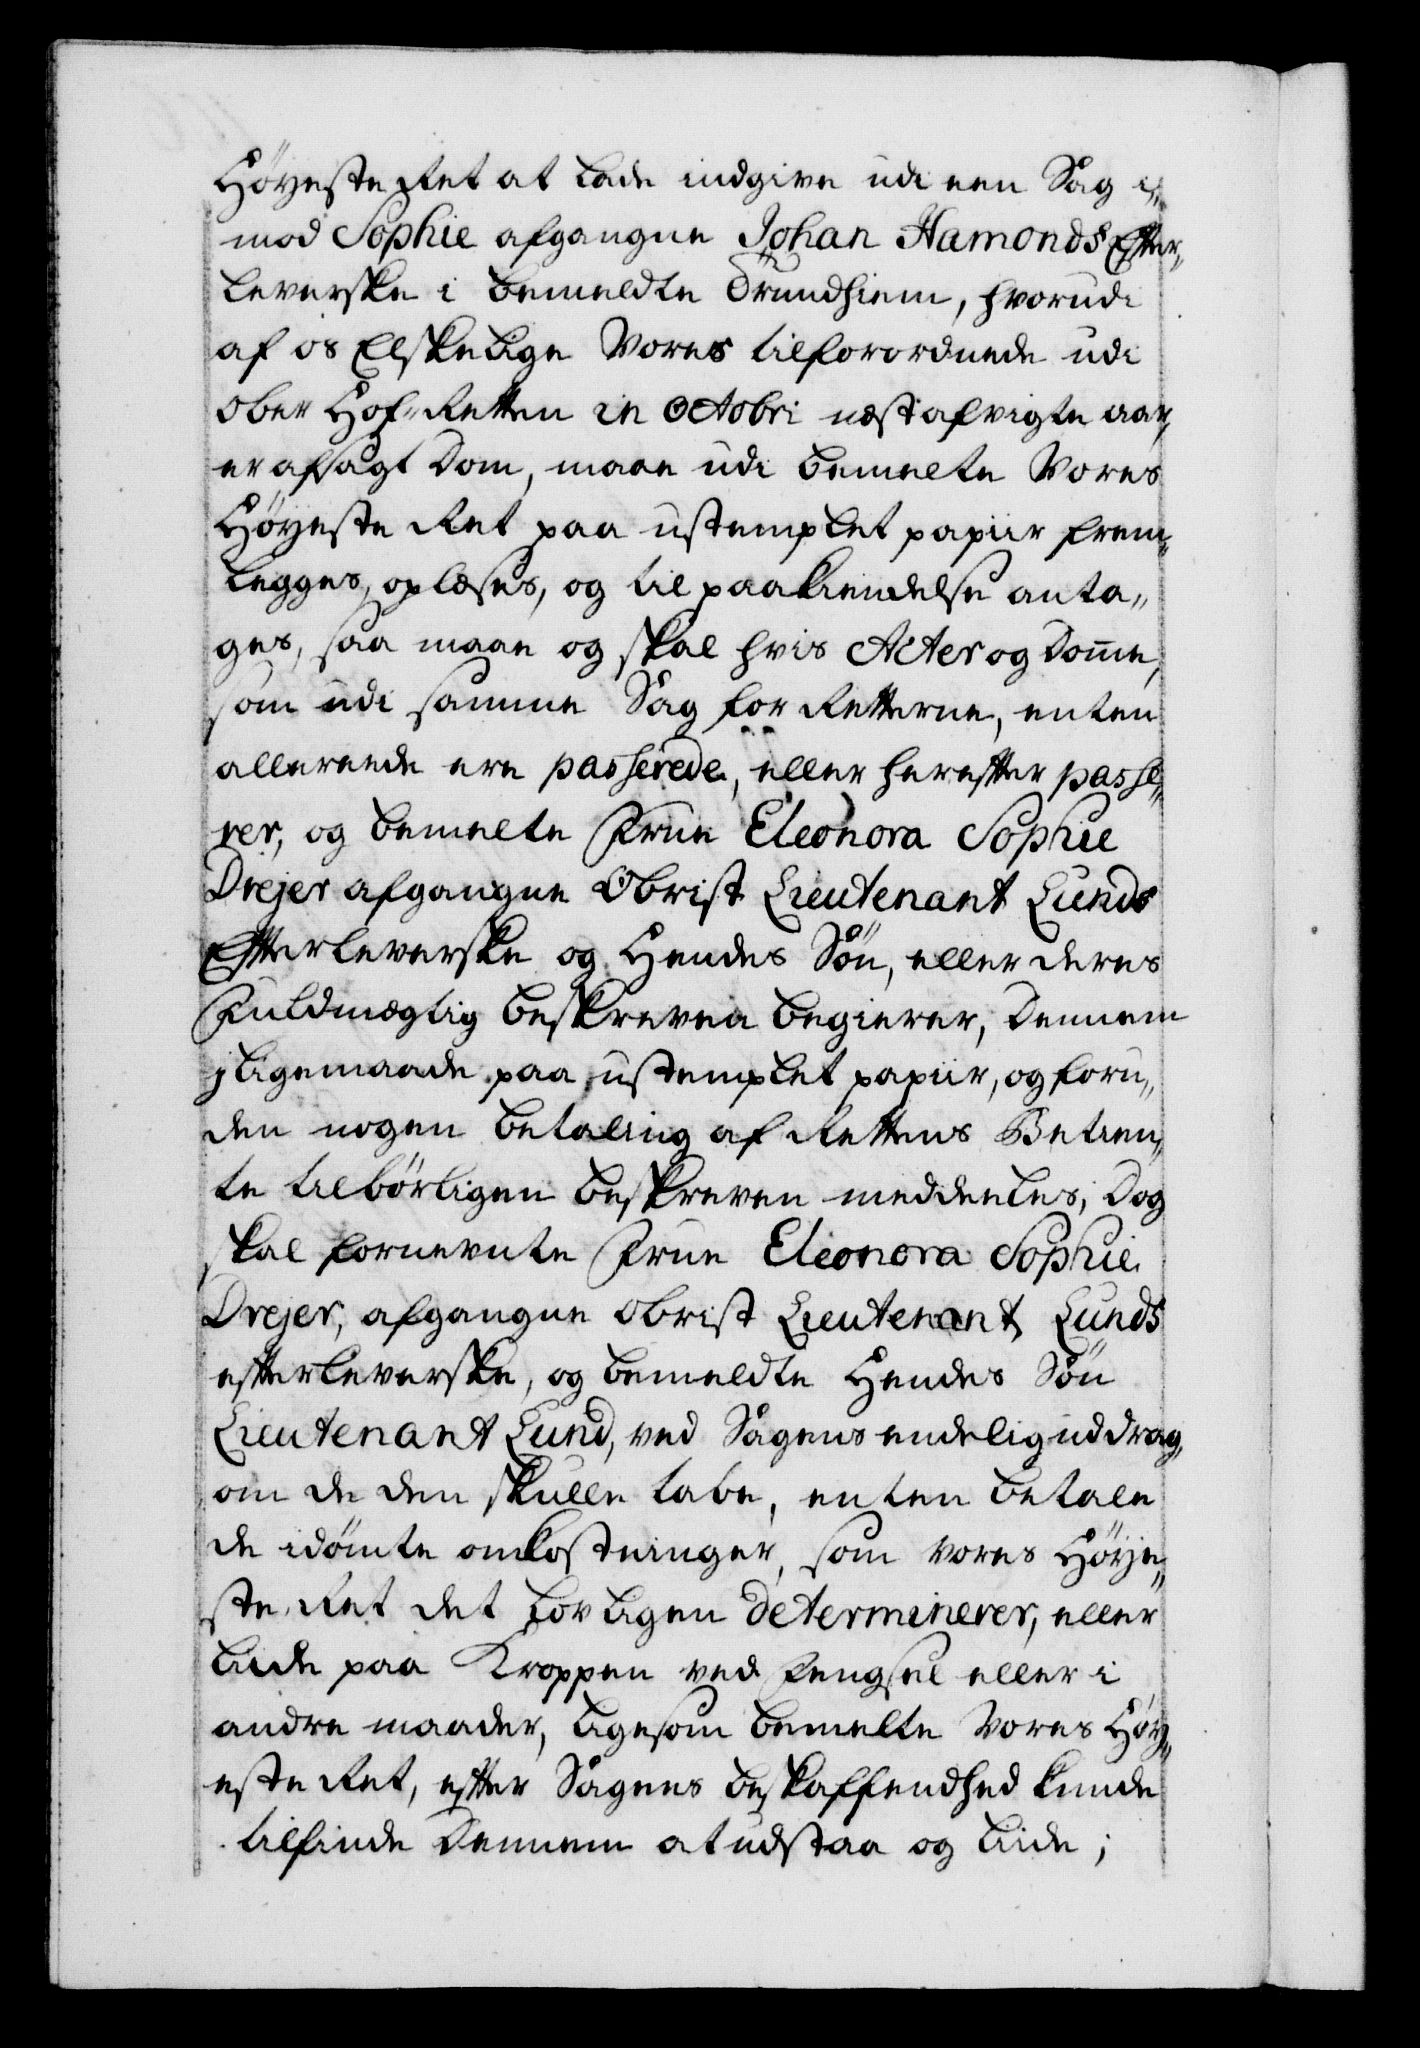 Høyeste Ret at lade indgive udi een Sag i„
mod Sophie afgangne Johan Hamonds Efter„
leverske i bemeldte Trundhiem, hvorudi
af os Elskelige Vores tilforordnede udi
Ober Hof-Retten in Octobri næstafvigte aar,
er afsagt Dom, maae udi bemelte Vores
Høyeste Ret paa ustemplet papiir frem„
legges, oplæses, og til paakiendelse anta„
ges, saa maae og skal hvis Acter og Domme,
som udi samme Sag for Retterne, enten
allereede ere passerede, eller herefter passe„
rer, og bemelte Frue Eleonora Sophie
Drejer afgangne Obrist Lieutenant Lunds
Efterleverske og Hendes Søn, eller deres
Fuldmægtig beskreven begierer, Dennem
j ligemaade paa ustemplet papiir, og foru„
den nogen betaling af Rettens Betien„
te tilbørligen beskreven meddeeles; Dog
skal fornevnte Frue Eleonora Sophie
Drejer, afgangne Obrist Lieutenant Lunds
efterleverske, og bemeldte Hendes Søn
Lieutenant Lund, ved Sagens endelig uddrag,
om de den skulle tabe, enten betale
de idømte omkostninger, som Vores Høye„
ste Ret det lovligen determinerer, eller
liide paa Kroppen ved Fengsel eller i
andre maader, ligesom bemelte Vores Høy„
este Ret, efter Sagens beskaffendhed kunde
tilfinde Dennem at udstaa og liide;